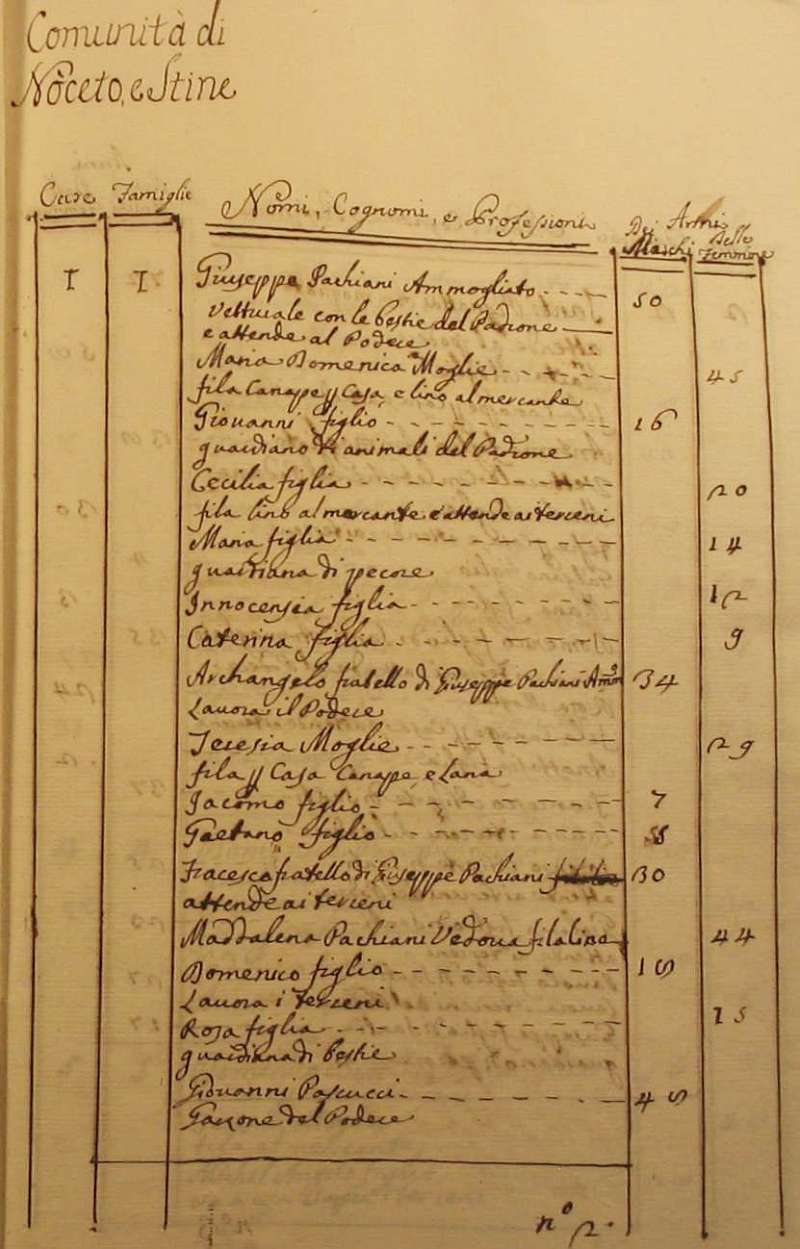 Comunità di
Noceto, e Stine
Case Famiglie Nomi, Cognomi, e Professioni Dei Maschi Anni Delle Femmine
I I Giuseppe Pachiani Ammogliato 50
Vetturale con le Bestie del Padrone
e attende al Podere
Maria Domenica Moglie 45
fila Canappe p Casa, e lino al mercante
Giovanni figlio 16
guardiano di animali del Padrone
Cecilia figlia 20
fila lino al mercante e attende ai terreni
Maria figlia 14
guardiana di pecore
Innocensia figlia 12
Caterina figlia 9
Archangelo fratello di Giuseppe Pachiani 34
Lauora il Podere
Teresia Moglie 29
fila p Casa Canappe, e Lana
Jacomo figlio 7
Gaetano figlio
Fracesco fratello di Giuseppe Pachiani 30
attende ai terreni
Maddalena Pachiani Vedoua fila lino 44
Domenico figlio 19
Lauora i terreni
Rosa figlia 15
guardiana di Bestie
Giouanni Pascucci 49
Garzone del Podere
n° 2.